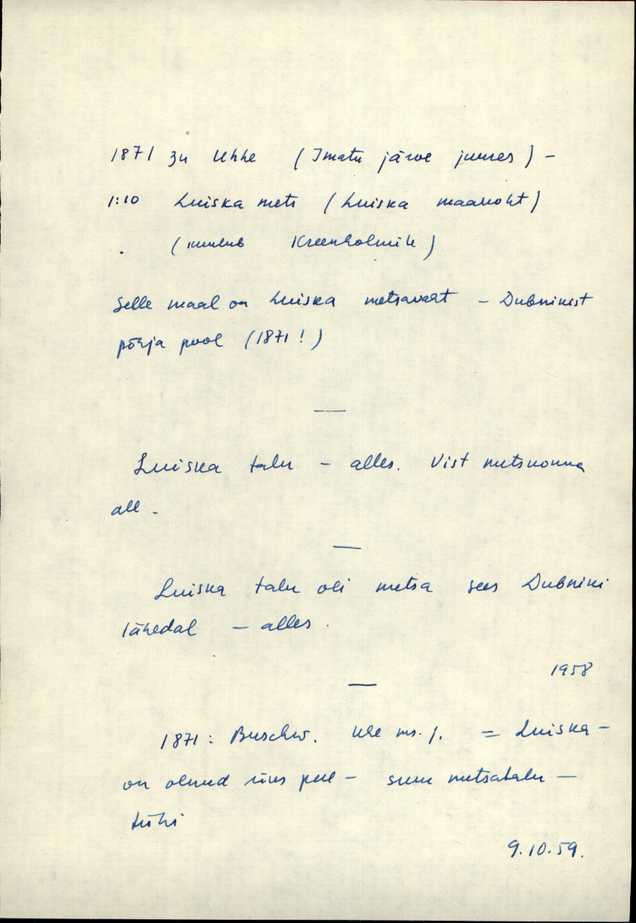 1871 zu Uhhe (Imatu järve juures) –
1:10 Luiska mets (Luiska maakoht)
(kuulub Kreenholmile)
Selle maal on Luiska metsavaht – Dubnikist
põhja pool (1871!)
—
Luiska talu – alles. Vist metskonna
all –
—
Luiska talu oli metsa sees Dubniki
lähedal – alles.
1958
—
1871: Buschw. = Luiska –
on olnud suur metsatalu –
tühi
9.10.59.